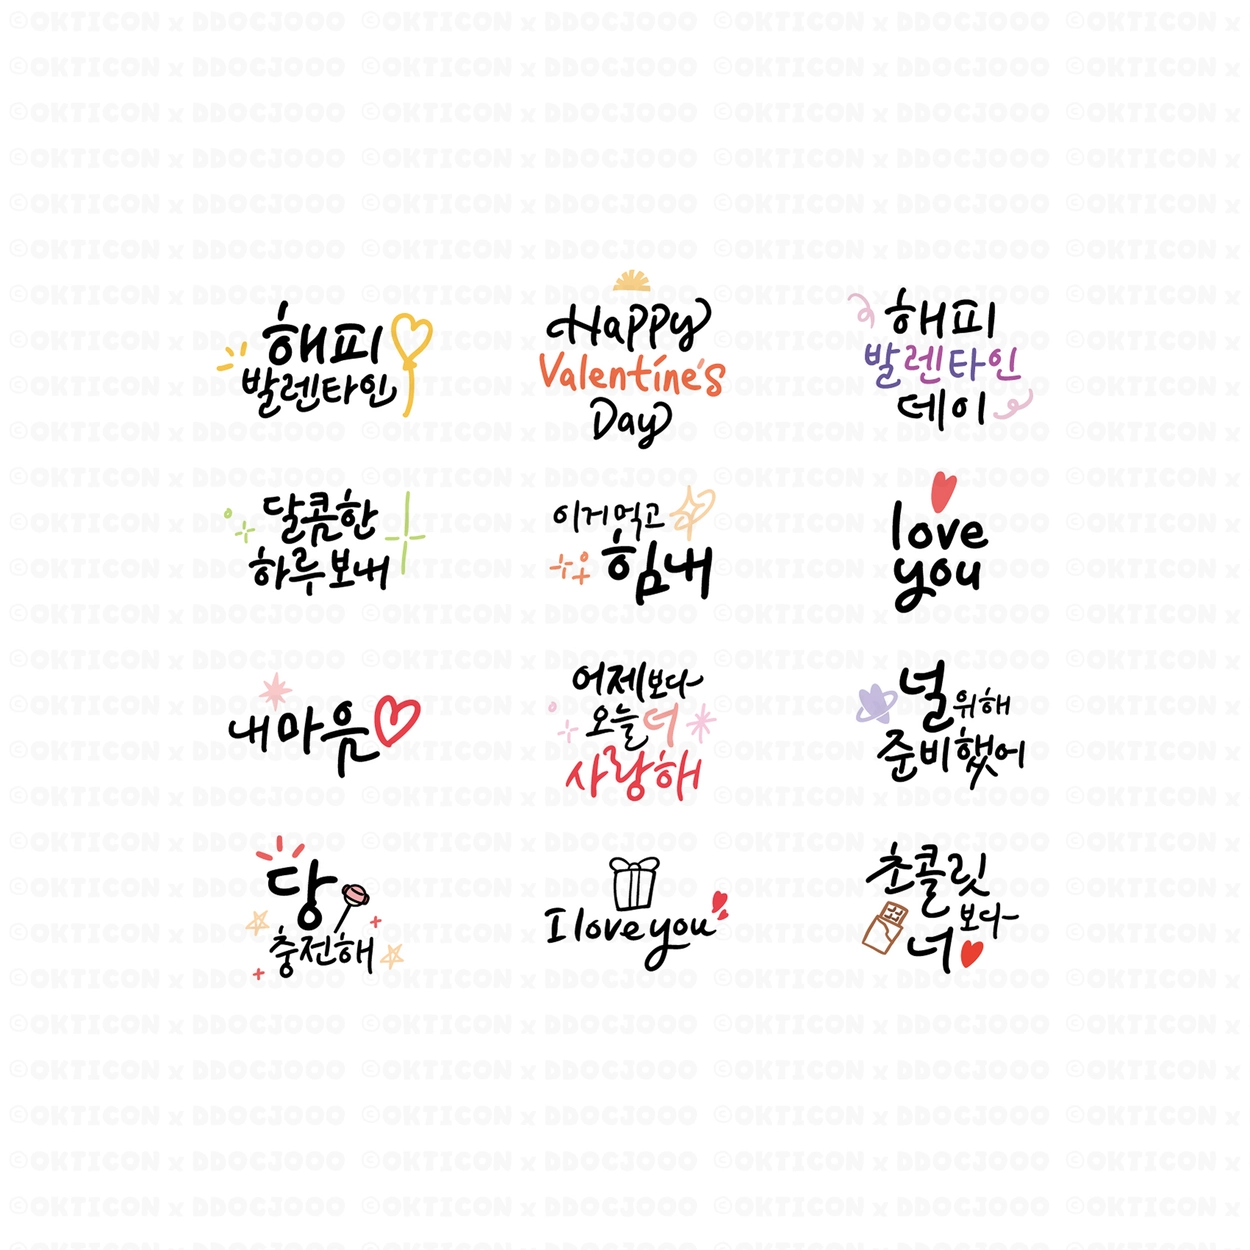 해피
발렌타인
Happy
Valentine's
Day
해피
발렌타인
데이
달콤한
하루 보내
이거 먹고
힘내
love
you
내 마음
어제보다
오늘 더
사랑해
널 위해
준비했어
당
충전해
I love you
초콜릿
보다
너
©OKTICON x DDOCJOOO